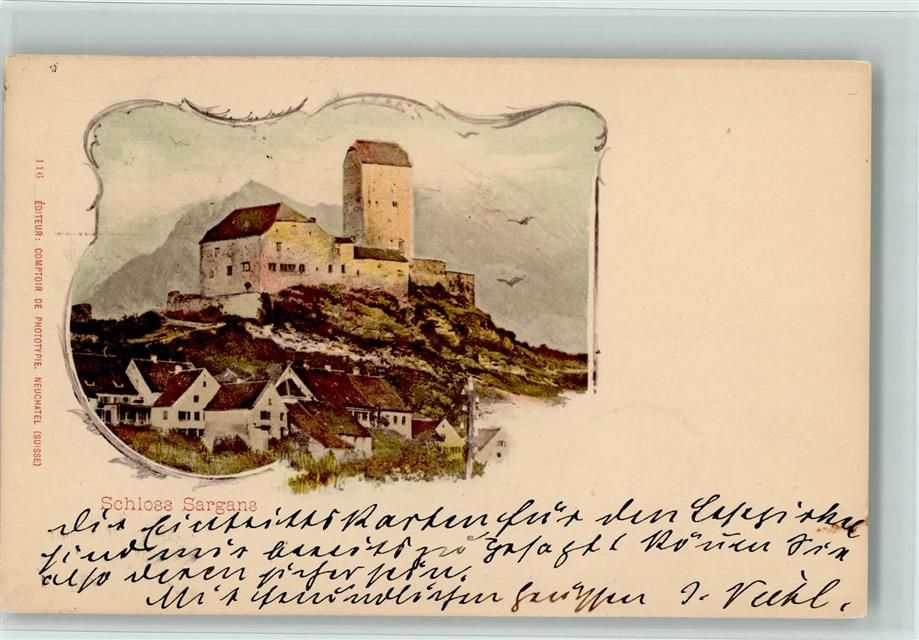 116 ÉDITEUR: COMPTOIR DE PHOTOTYPIE, NEUCHATEL (SUISSE)
Schloss Sargans
Die Eintrittskarten für den Lesezirkel
sind mir bereits zugesagt können Sie
also deren sicher sein.
Mit freundlichen Grüssen J.